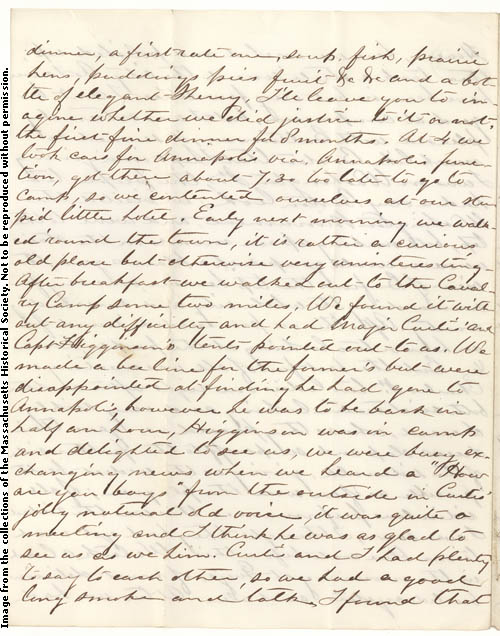 dinner, a first rate one, soup, fish, prairie
hens, puddings pies fruit &c &c and a bot
tle of elegant Sherry, I'll leave you to im-
agine whether we did justice to it or not
the first fine dinner for 8 months. At 4 we
took cars for Annapolis via. Annapolis junc-
tion, got there about 7.30 too late to go to
camp, so we contented ourselves at our stu-
pid little hotel. Early next morning we walk-
ed 'round the town, it is rather a curious
old place but otherwise very uninteresting.
After breakfast we walked out to the Caval-
ry Camp some two miles. We found it with
out any difficulty and had Major Curtis' and
Capt Higginson's tents pointed out to us. We
made a bee line for the former's but were
disappointed at finding he had gone to
Annapolis, however he was to be back in
half an hour, Higginson was in camp
and delighted to see us, we were busy ex-
changing news when we heard a "How
are you boys" from the outside in Curtis'
jolly natural old voice, it was quite a
meeting and I think he was as glad to
see us as we him. Curtis and I had plenty
to say to each other, so we had a good
long smoke and talk, I found that
Image from the collections of the Massachusetts Historical Society. Not to be reproduced without permission.